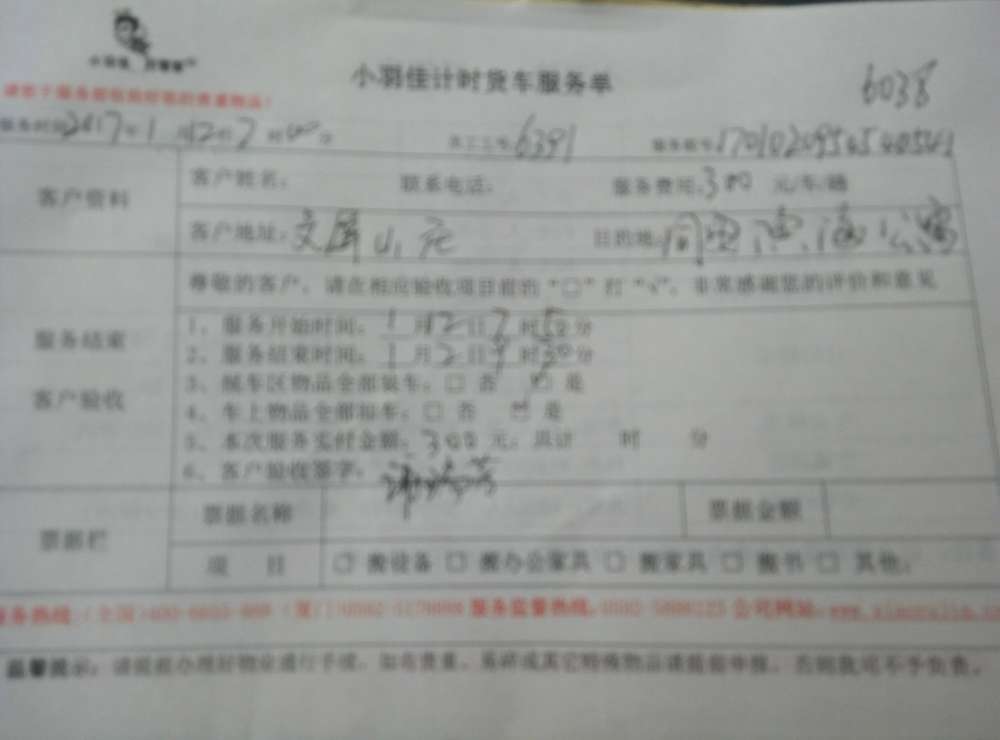 小羽佳计时货车服务单
6038
请您于服务前收捡好您的贵重物品!
服务时间2017年1月12日7时00分 员工工号6391 服务单号
客户资料
客户姓名: 联系电话: 服务费用:300 元/车/趟
客户地址:文屏山庄 目的地:
尊敬的客户,请在相应验收项目前的“□”打“√”,非常感谢您的评价和意见
服务结束
客户验收
1、服务开始时间:1月12日7时50分
2、服务结束时间:1月2日9时30分
3、搬车区物品全部装车:□ 否 □ 是
4、车上物品全部卸车:□ 否 □ 是
5、本次服务实付金额:300元,共计 时 分
6、客户验收签字:
票据栏
票据名称 票据金额
项 目 □ 搬设备 □ 搬办公家具 □ 搬家具 □ 搬书 □ 其他:
服务热线: 服务监督热线: 公司网站:
温馨提示:请提前办理好物业通行手续,如有贵重、易碎或其它特殊物品请提前申报,否则我司不予负责。